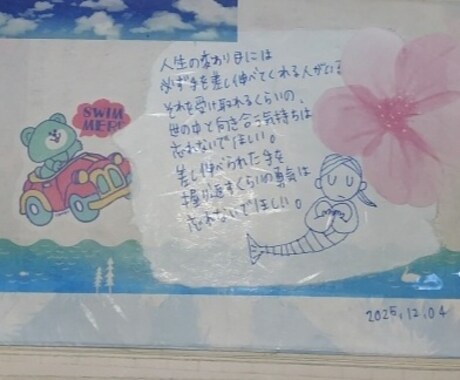 人生の変わり目には
必ず手を差し伸べてくれる人がいる
それを受け取れるくらいの、
世の中と向き合う気持ちは
忘れないでほしい。
差し伸べられた手を
握り返すくらいの勇気は
忘れないでほしい。
SWIM
MER!
2025.12.04